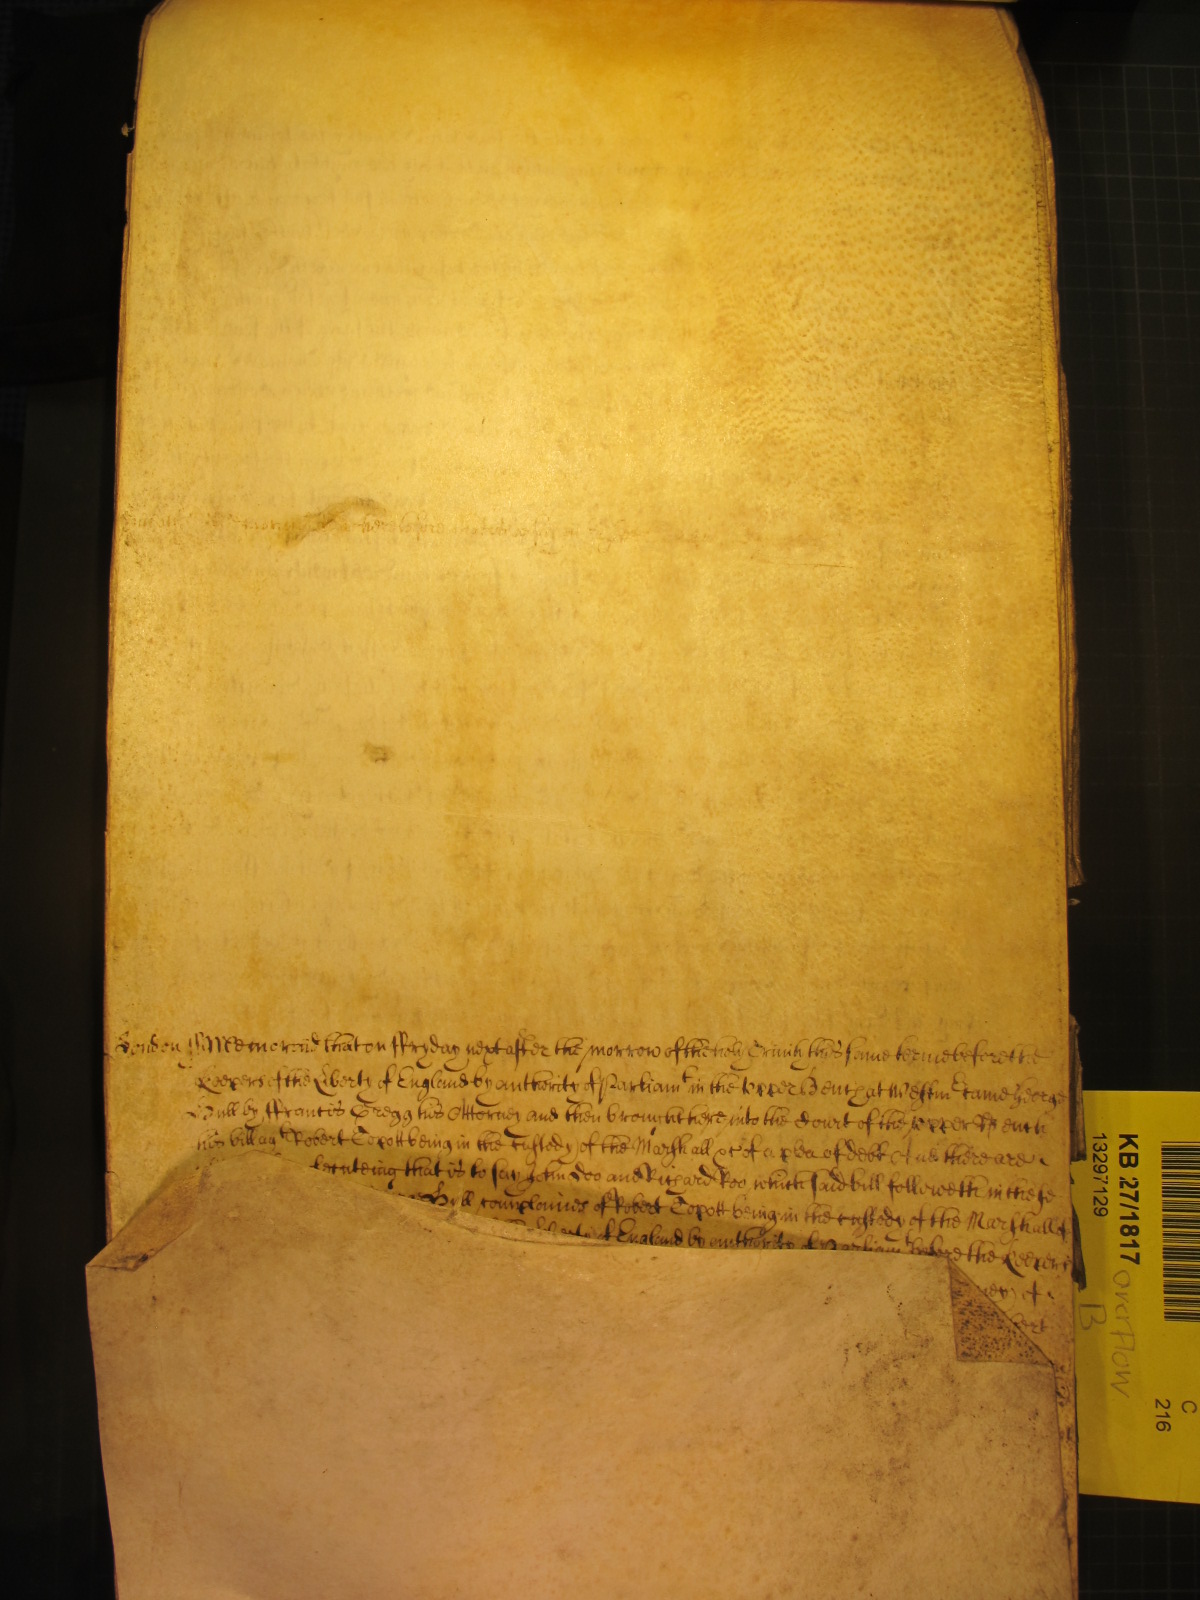 London ss Memorand that on ffryday next after the morrow of the holy Trinity this same terme before the
Keepers of the Liberty of England by authority of Parliamt in the Upper Bench at Westmr came George
Hull by ffrancis Gregg his Attorney and then brought here into the Court of the upper Bench
his bill agt Robert Copott being in the custody of the Marshall &c of a plea of debt And there are
secuteing that is to say John Doo and Richard Roo which said bill followeth in these
Hull complaines of Robert Copott being in the custody of the Marshall of
Liberty of England by authority of Parliamt before the Keepers
of
KB 27/1817
13297129
overflow
B
C
216